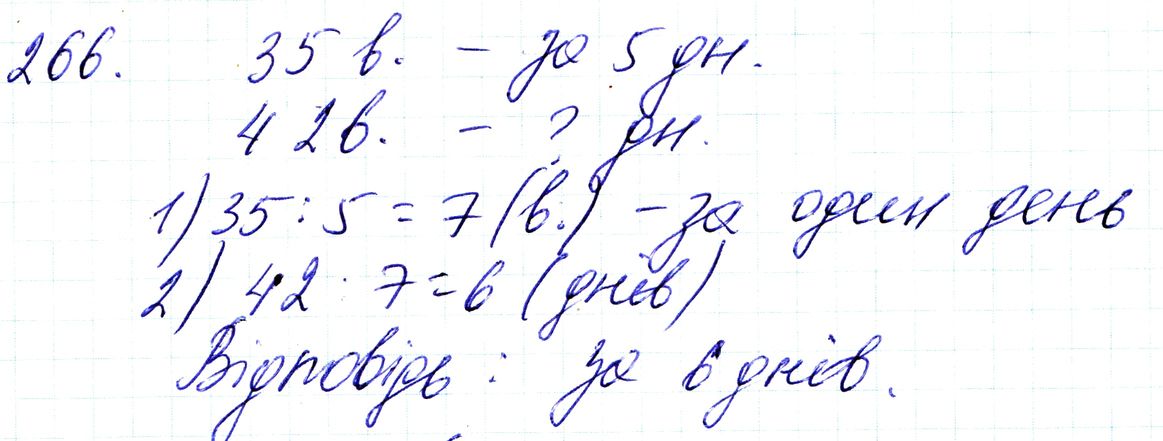 266. 35 в. – за 5 дн.
42в. – ? дн.
1) 35 : 5 = 7 (в.) – за один день
2) 42 : 7 = 6 (днів)
Відповідь : за 6 днів.